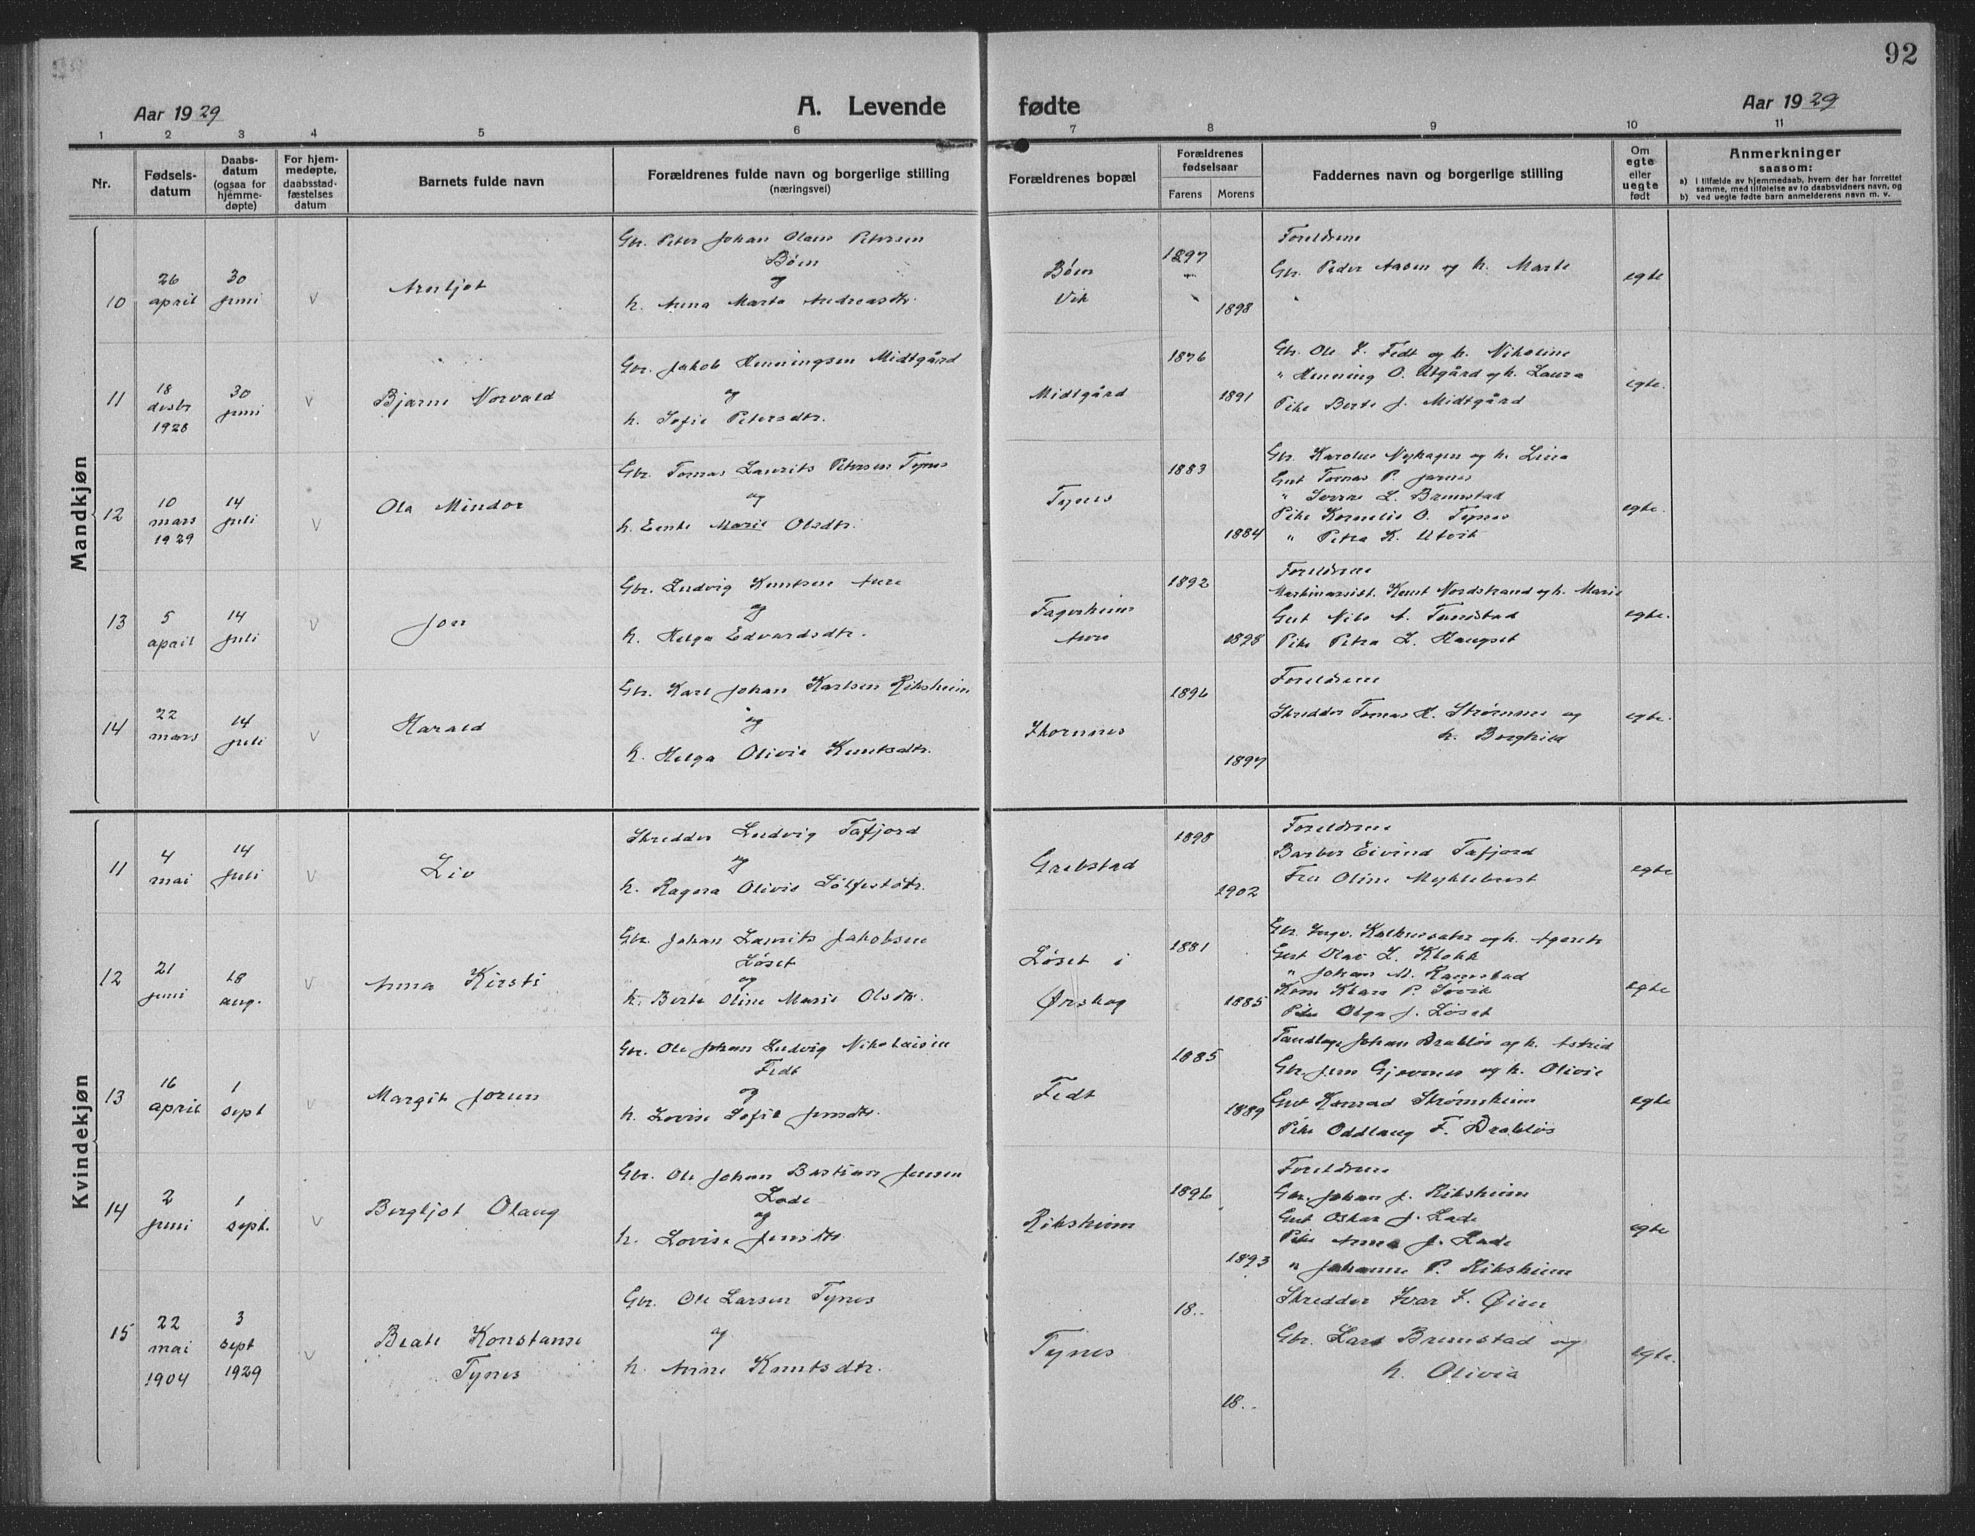 92
Aar 1929 A. Levende fødte Aar 1929
1 2 3 4 5 6 7 8 9 10 11
Nr.
Fødsels-
datum
Daabs-
datum
(ogsaa for
hjemme-
døpte)
For hjem-
medøpte,
daabsstad-
fæstelses
datum
Barnets fulde navn
Forældrenes fulde navn og borgerlige stilling
(næringsvei)
Forældrenes bopæl
Forældrenes
fødselsaar
Farens Morens
Faddernes navn og borgerlige stilling
Om
egte
eller
uegte
født
Anmerkninger
saasom:
a) i tilfælde av hjemmedaab, hvem der har forrettet
samme, med tilføielse av to daabsvidners navn, og
b) ved uegte fødte barn anmelderens navn m. v.
Mandkjøn
10
26
april
30
juni
v
Arnljot
Gbr. Peter Johan Olaus Petersen
Bøen
og
h. Anna Marta Andreasdtr.
Bøen
Vik
1897
1898
Foreldrene
Gbr. Peder Aasen og h. Marte
egte
11
18
desbr
1928
30
juni
v
Bjarne Norvald
Gbr. Jakob Henningsen Midtgård
og
h. Sofie Petersdtr.
Midtgård
1876
1891
Gbr. Ole L. Fedt og h. Nikoline
" Henning O. Utgård og h. Laura
Pike Berte J. Midtgård
egte.
12
10
mars
1929
14
juli
v
Ola Mindor
Gbr. Tomas Laurits Petersen Tynes
og
h. Marie Olsdtr.
Tynes
1883
1884
Gbr. Karolus Nyhagen og h. Lina
Gut Tomas P. Jarnes
" Sverre L. Bremstad
Pike Kornelie O. Tynes
" Petra K. Utvik
egte.
13
5
april
14
juli
v
Jon
Gbr. Ludvig Knutsen Aure
og
h. Helga Edvardsdtr.
Fagerheim
Aure
1892
1898
Foreldrene
Knut Nordstrand og h. Marie
Gut Nils A. Tunstad
Pike Petra L. Haugset
egte.
14
22
mars
14
juli
v
Harald
Gbr. Karl Johan Karlsen Riksheim
og
h. Helga Olivie Knutsdtr.
Skornnes
1896
1897
Foreldrene
Skredder Tomas K. Strømmen og
h. Borghild
egte.
Kvindekjøn
11
4
mai
14
juli
v
Liv
Skredder Ludvig Tafjord
og
h. Ragna Olivie Sølfestdtr.
Grebstad
1898
1902
Foreldrene
Barber Eivind Tafjord
Fru Oline Myklebust
egte
12
21
juni
18
aug.
v
Anna Kirsti
Gbr. Johan Laurits Jakobsen
Løset
og
h. Berte Oline Marie Olsdtr.
Løset i
Ørskog
1881
1885
Gbr. Ingv. og h. Agnete
Gut Olav L. Klokk
" Johan M. Ramstad
Kone Klara P. Søvik
Pike Olga J. Løset
egte
13
16
april
1
sept
v
Margit Jorun
Gbr. Ole Johan Ludvig Nikolaisen
Fedt
og
h. Lovise Sofie Jensdtr.
Fedt
1885
1889
Tandlæge Johan Drabløs og h. Astrid
Gbr. Jens Gjevenes og h. Olivie
Gut Konrad Strømsheim
Pike Oddlaug F. Drabløs
egte
14
2
juni
1
sept.
v
Bergljot Olaug
Gbr. Ole Johan Bastian Jensen
Lade
og
h. Lovise Jensdtr
Riksheim
1896
1893
Foreldrene
Gbr. Johan J. Riksheim
Gut Oskar J. Lade
Pike Anna J. Lade
" Johanne P. Riksheim
egte
15
22
mai
1904
3
sept
1929
v
Beate Konstanse
Tynes
Gbr. Ole Larsen Tynes
og
h. Anne Knutsdtr.
Tynes
18..
18..
Skredder Ivar L. Øien
Gbr. Lars Bremstad og
h. Olivia
egte.